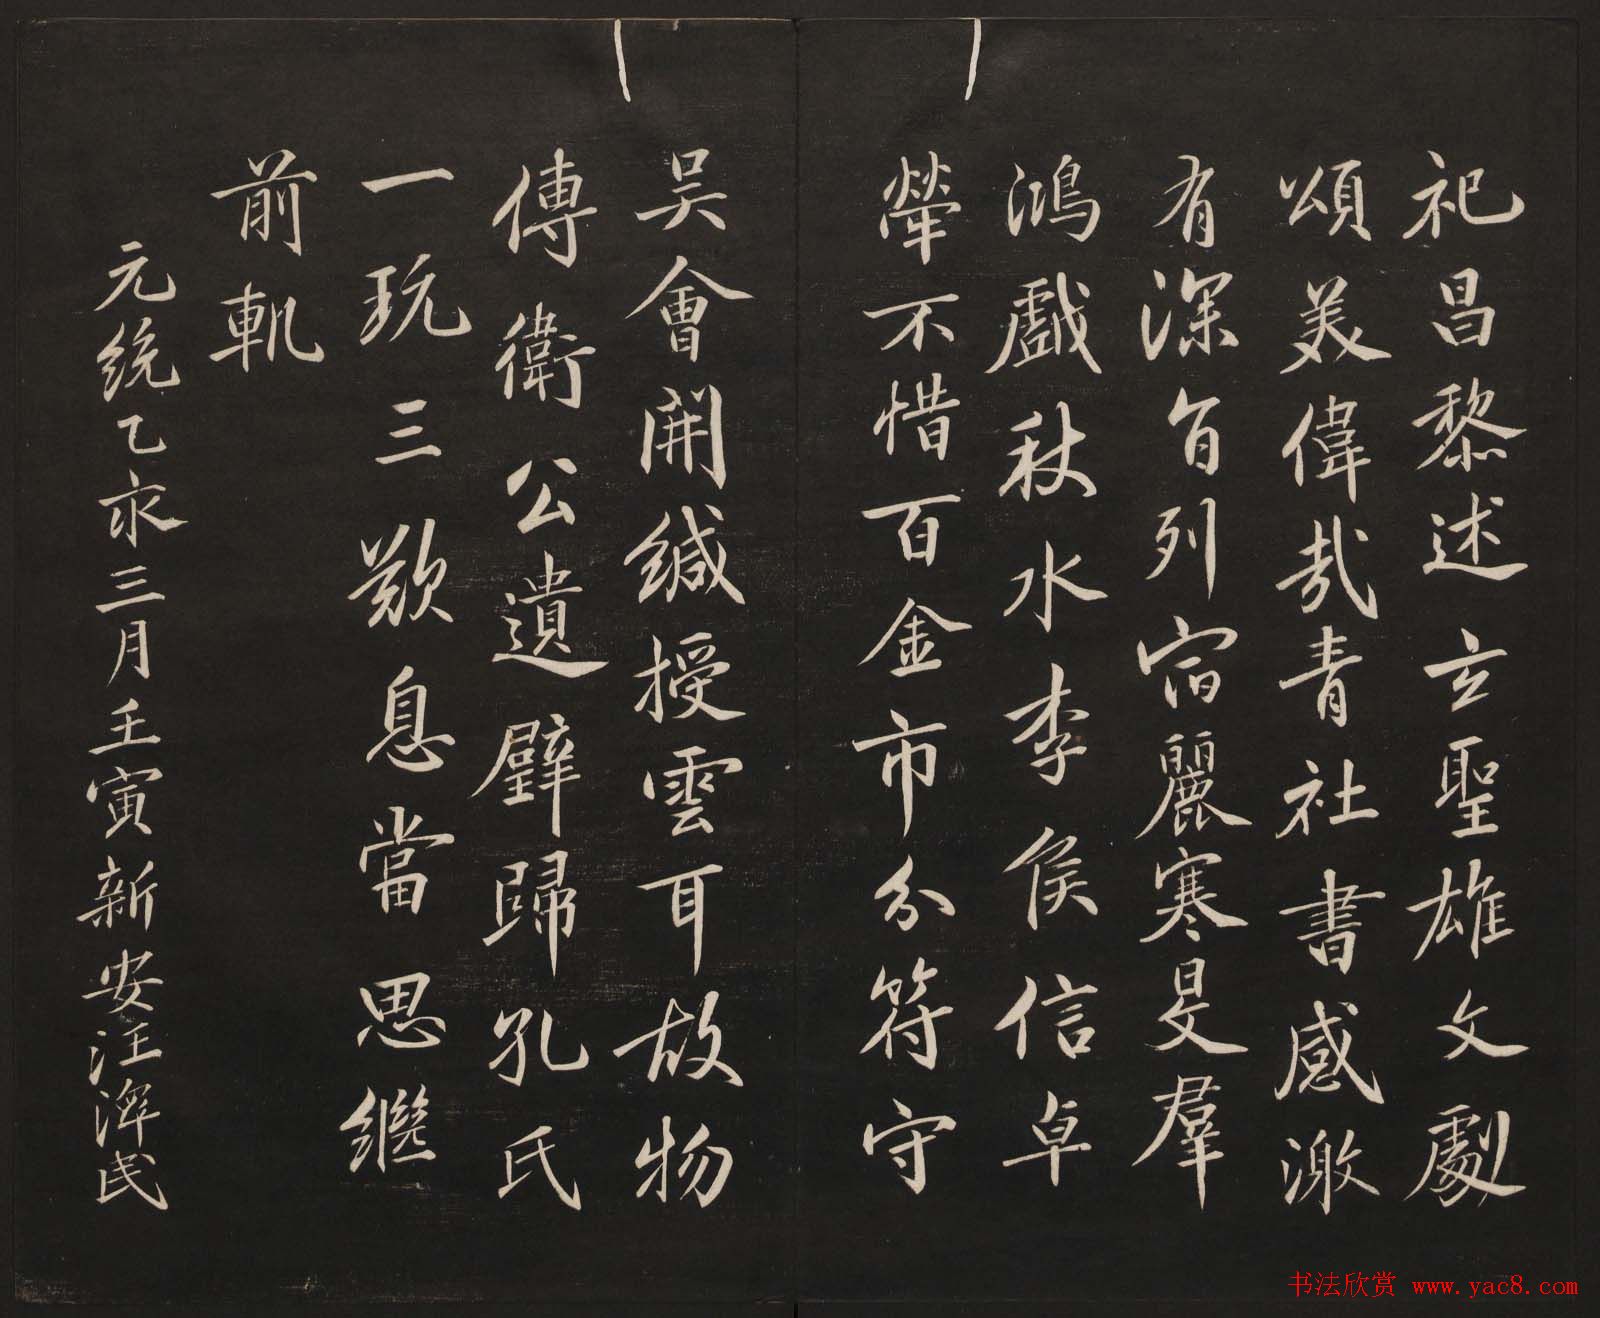 祀昌黎述玄聖雄文劇
頌美偉哉青社書感激
有深旨列宿麗寒旻群
鴻戲秋水李侯信卓
犖不惜百金市分符守
吴會開緘授雲耳故物
傳衛公遺璧歸孔氏
一玩三歎息當思繼
前軌
元統乙亥三月壬寅新安汪澤民
书法欣赏 www.yac8.com